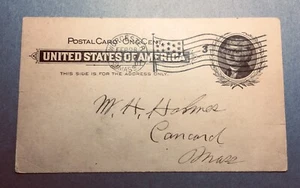 POSTAL CARD ONE CENT
UNITED STATES OF AMERICA
THIS SIDE IS FOR THE ADDRESS ONLY.
3
W. H. Holmes
Concord
Mass